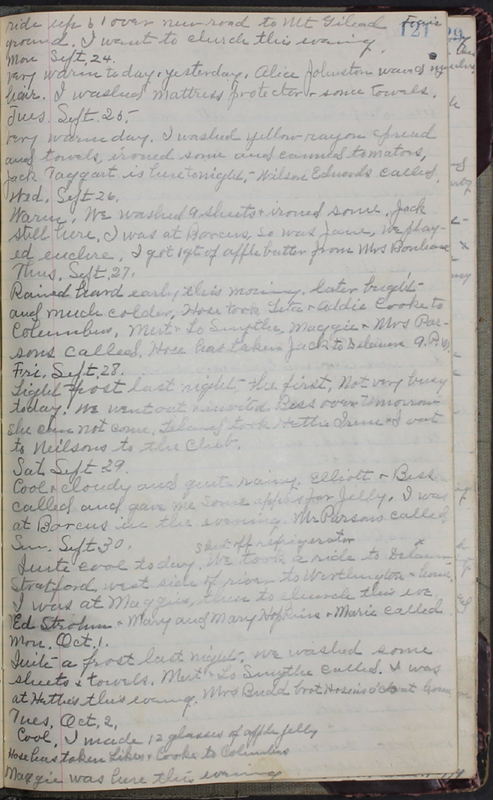 ride up 61 over new road to Mt Gilead
121
ground. I went to church this evening.
Mon Sept. 24.
very warm today & yesterday. Alice Johnston waved my
hair. I washed Mattress protector & some towels.
Tues. Sept. 25,
very warm day. I washed yellow rayon spread
and towels, ironed some and canned tomatoes,
Jack Taggart is here tonight, - Wilson Edwards called.
Wed. Sept 26.
Warm. We washed 9 sheets & ironed some. Jack
still here. I was at Barcus, so was Jane, we play-
ed euchre. I got 1 qt of apple butter from Mrs
Thus, Sept. 27.
Rained hard early this morning, later bright
and much colder, Hose took & Addie Cooke to
Columbus, Mert & Lo Smythe, Maggie & Mrs Par-
sons called, Hose has taken Jack to 9. P.M.
Fri. Sept. 28.
Light frost last night, the first, Not very busy
today. We went out & invited Bess over tomorrow
she can not come. took Hettie Irene & I out
to Neilsons to the Club.
Sat Sept 29.
Cool & cloudy and quite rainy. Elliott & Bess
called and gave me some apples for Jelly. I was
at Barcus in the evening. Mr Parsons called
Sun. Sept 30. shut off refrigerator
Quite cool today. We took a ride to
Stratford, west side of river to Worthington & home,
I was at Maggies, then to church this eve.
Ed Strohm & Mary and Mary Hopkins & Marie called
Mon. Oct. 1.
Quite a frost last night. We washed some
sheets & towels. Mert & Lo Smythe called. I was
at Hetties this evening. Mrs Budd brot home,
Tues. Oct, 2,
Cool, I made 12 glasses of apple jelly
Hose has taken & Cooke to Columbus
Maggie was here this evening